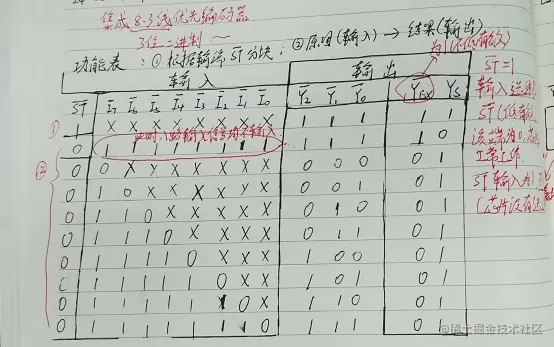 集成8-3线优先编码器
3位二进制~
功能表：①根据输端ST分块；②原因(输入)→结果(输出)
为1(不低有效)
输入 输出
ST I7 I6 I5 I4 I3 I2 I1 I0 Y2 Y1 Y0 YEX YS
① 1 X X X X X X X X 1 1 1 1 1
此时八路输入信号均不输入
② 0 1 1 1 1 1 1 1 1 1 1 1 1 0
0 0 X X X X X X X 0 0 0 0 1
0 1 0 X X X X X X 0 0 1 0 1
0 1 1 0 X X X X X 0 1 0 0 1
0 1 1 1 0 X X X X 0 1 1 0 1
0 1 1 1 1 0 X X X 1 0 0 0 1
0 1 1 1 1 1 0 X X 1 0 1 0 1
0 1 1 1 1 1 1 0 X 1 1 0 0 1
0 1 1 1 1 1 1 1 0 1 1 1 0 1
ST=1
输入
ST(低有效)
该端为0,
正常工作
ST输入为1
(芯片没有
@稀土掘金技术社区